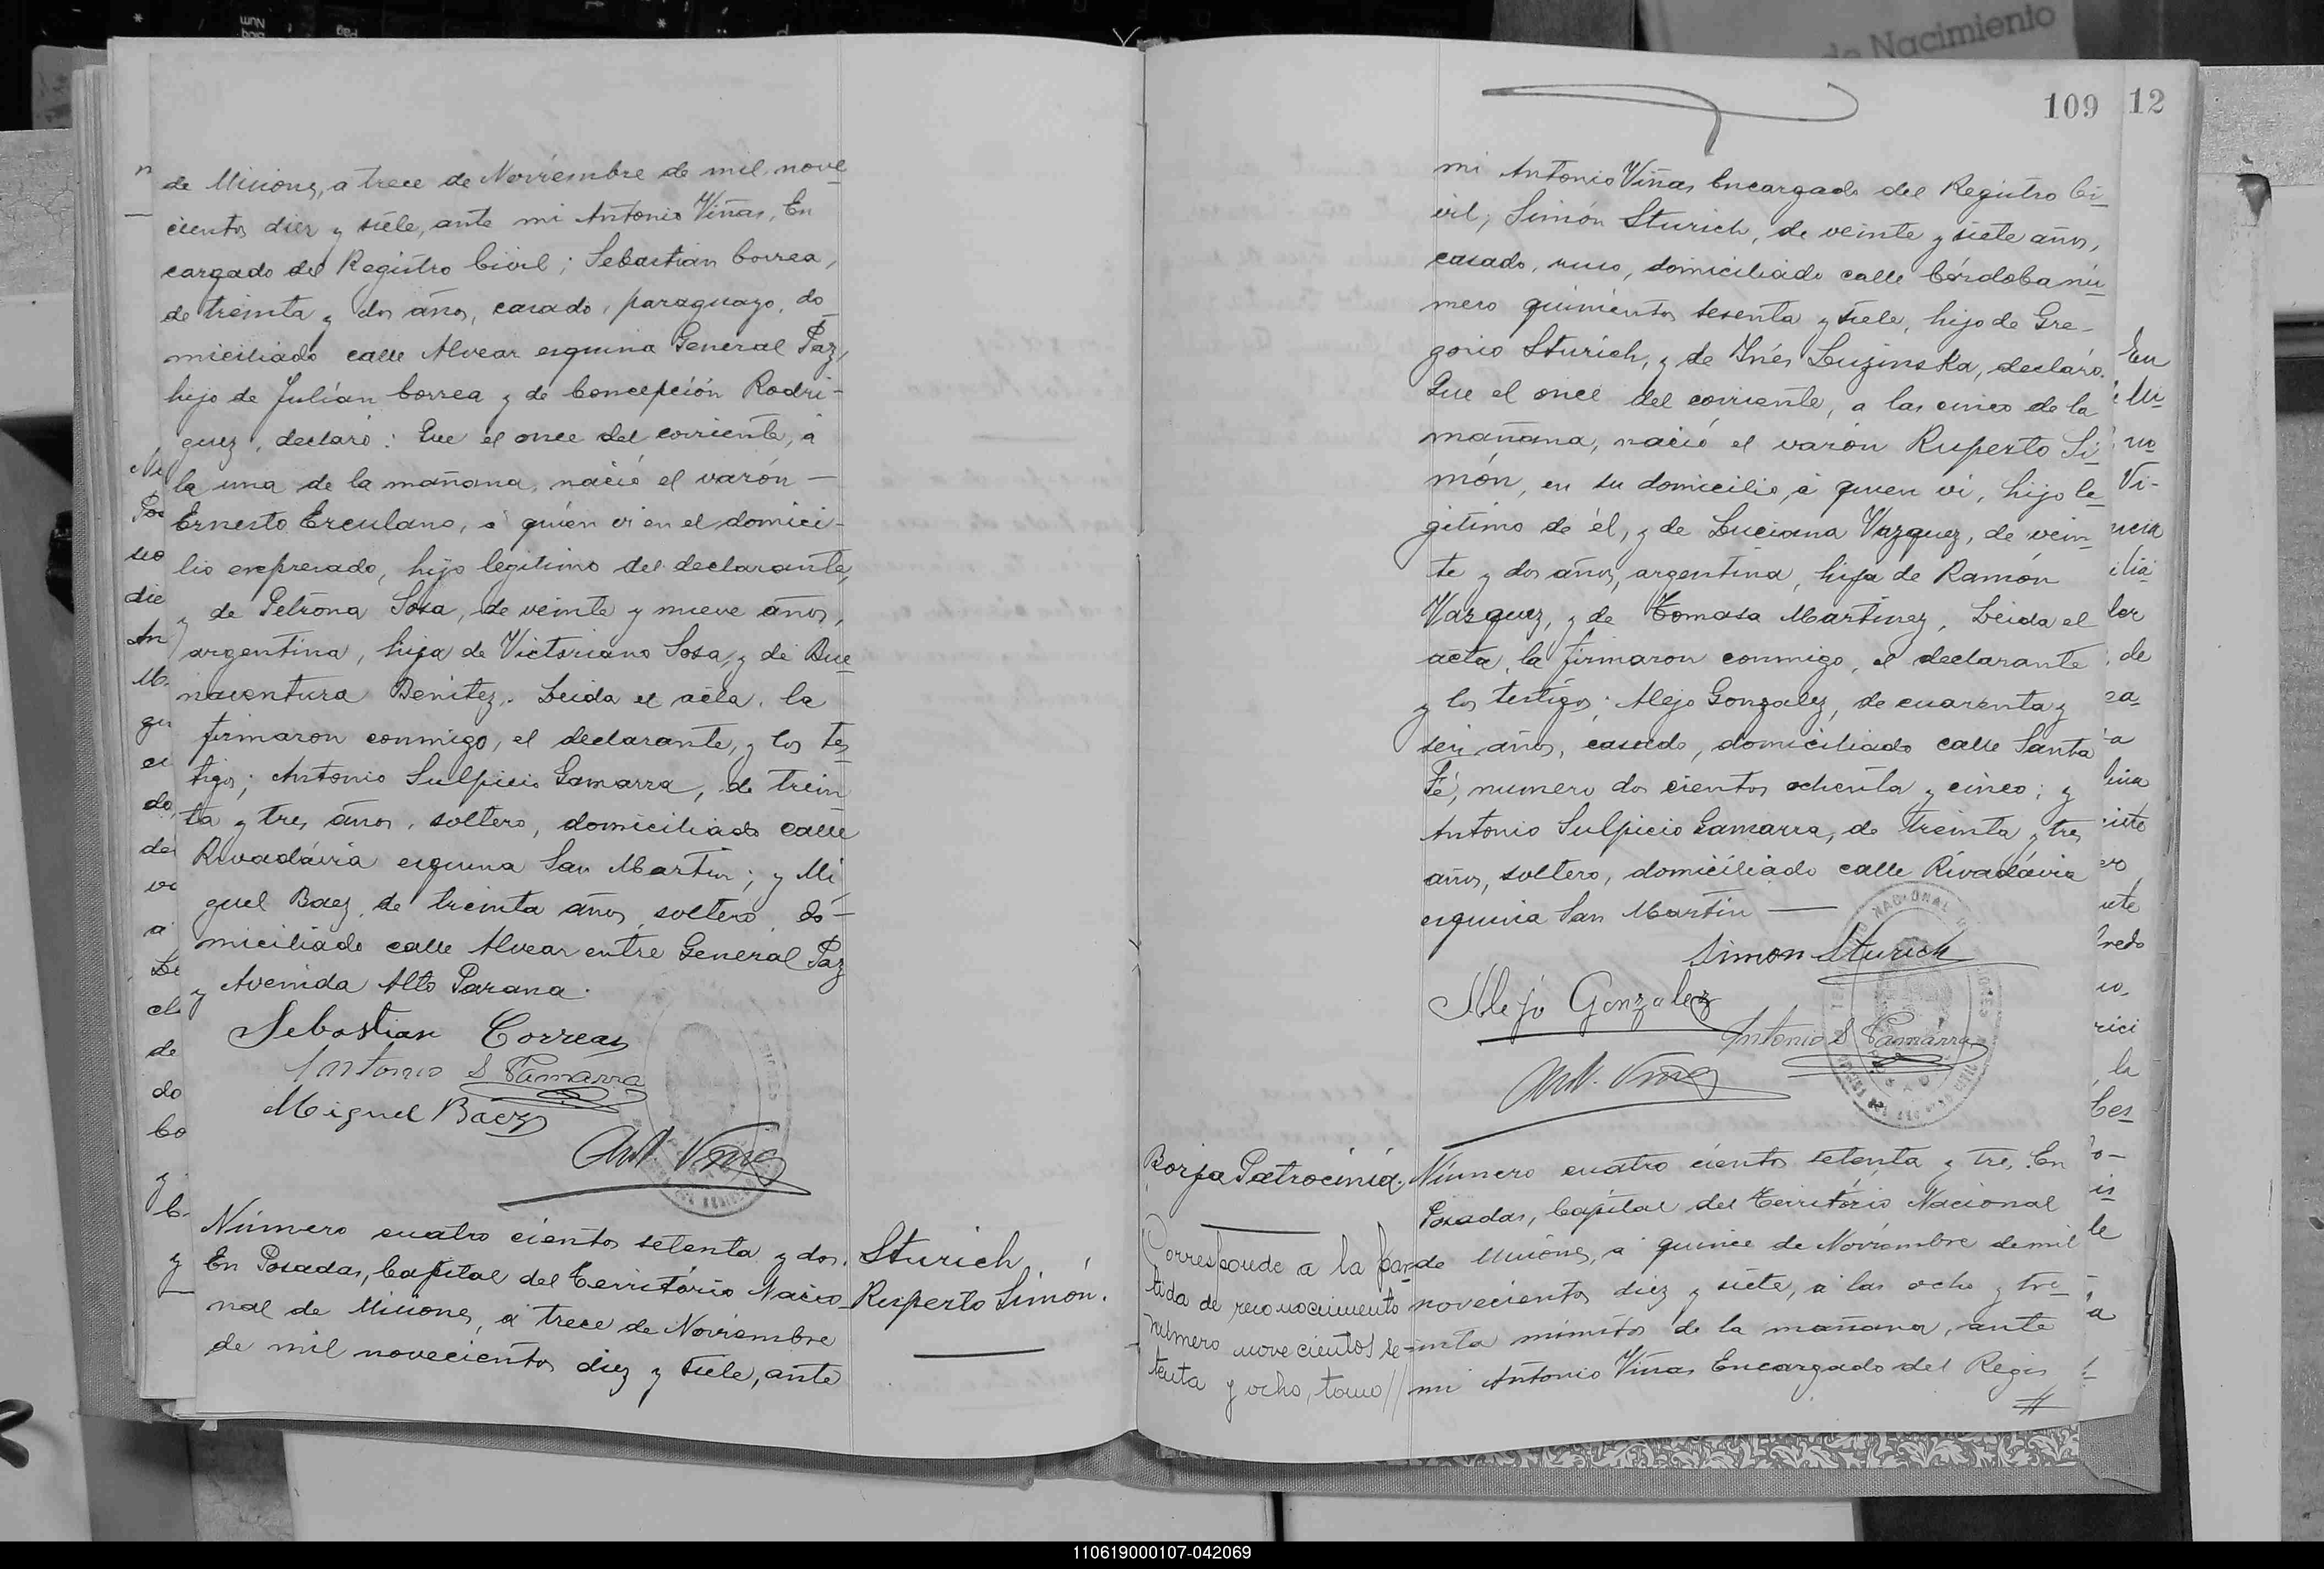 de Nacimiento
de Misiones, a trece de Noviembre de mil nove
cientos diez y siete, ante mi Antonio Viñas, En
cargado del Registro Civil; Sebastian Correa,
de treinta y dos años, casado, paraguayo, do
miciliado calle Alvear esquina General Paz,
hijo de Julián Correa y de Concepción Rodri-
guez, declaró: Que el once del corriente, á
la una de la mañana, nació el varón —
Ernesto Erculano, á quién vi en el domici-
lio expresado, hijo legitimo del declarante,
y de Petrona Sosa, de veinte y nueve años,
argentina, hija de Victoriano Sosa, y de Bue
naventura Benitez. Leida el acta, la
firmaron conmigo, el declarante, y los tes
tigos; Antonio Sulpicio Gamarra, de trein
ta y tres años, soltero, domiciliado calle
Rivadávia esquina San Martin; y Mi
guel Baez, de treinta años, soltero, do-
miciliado calle Alvear entre General Paz
y Avenida Alto Parana.
Sebastian Correa
Antonio S Gamarra
Miguel Baez
Ant. Viñas
Número cuatro cientos setenta y dos.
En Posadas, Capital del Território Nacio
nal de Misiones, á trece de Noviembre
de mil novecientos diez y siete, ante
Sturich
Ruperto Simón.
109
12
mi Antonio Viñas Encargado del Registro Ci
vil; Simón Sturich, de veinte y siete años,
casado, ruso, domiciliado calle Córdoba nú
mero quinientos sesenta y siete, hijo de Gre-
gorio Sturich, y de Inés Luzinska, declaró.
Que el once del corriente, a las cinco de la
mañana, nació el varón Ruperto Si
món, en su domicilio, á quien vi, hijo le
gitimo de él, y de Luciana Vazquez, de vein
te y dos años, argentina, hija de Ramón
Vazquez, y de Tomasa Martinez, Leida el
acta, la firmaron conmigo, el declarante
y los testigos; Alejo Gonzalez, de cuarenta y
seis años, casado, domiciliado calle Santa
Fé, numero dos cientos ochenta y cinco; y
Antonio Sulpicio Gamarra, de treinta y tres
años, soltero, domiciliado calle Rivadávia
esquina San Martin —
Simon Sturich
Alejo Gonzalez
Antonio S Gamarra
Ant. Viñas
Borja Patrocinia.
Corresponde a la par
tida de reconocimiento
número novecientos se-
tenta y ocho, tomo //
Número cuatro cientos setenta y tres. En
Posadas, Capital del Território Nacional
de Misiones, á quince de Noviembre de mil
novecientos diez y siete, á las ocho y tre-
inta minutos de la mañana, ante
mi Antonio Viñas Encargado del Regis
//
110619000107-042069